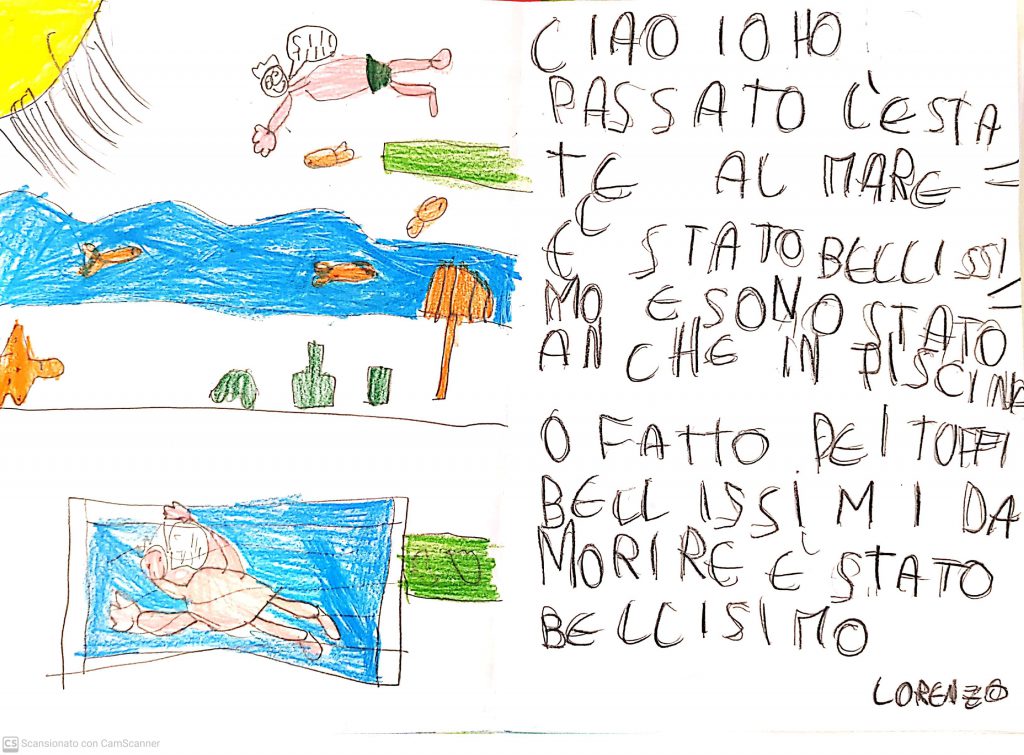 CIAO IO HO
PASSATO L'ESTA
TE AL MARE =
È STATO BELLISSI
MO E SONO STATO
ANCHE IN PISCINA
O FATTO DEI TUFFI
BELLISSIMI DA
MORIRE È STATO
BELLISIMO
LORENZO
CS Scansionato con CamScanner